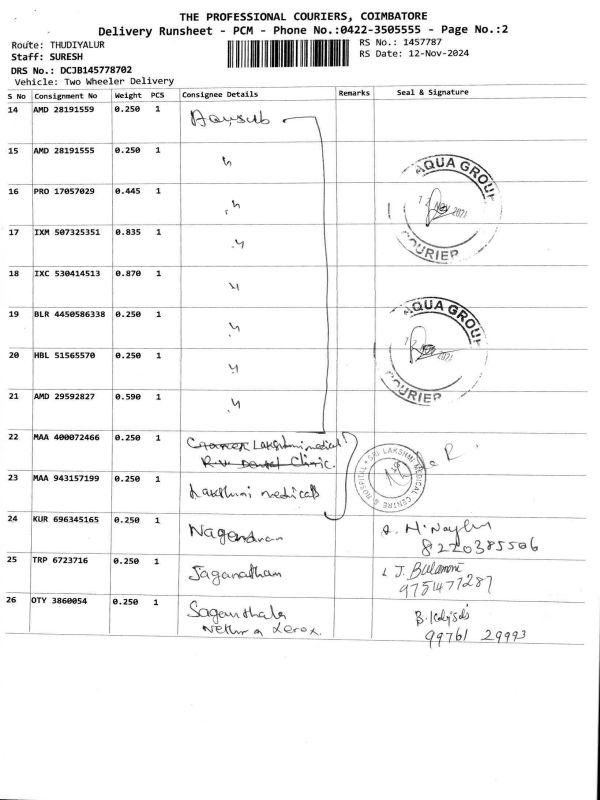 THE PROFESSIONAL COURIERS, COIMBATORE
Delivery Runsheet - PCM - Phone No.:0422-3505555 - Page No.:2
Route: THUDIYALUR
RS No.: 1457787
Staff: SURESH
RS Date: 12-Nov-2024
DRS No.: DCJB145778702
Vehicle: Two Wheeler Delivery
S No Consignment No Weight PCS Consignee Details Remarks Seal & Signature
14 AMD 28191559 0.250 1
15 AMD 28191555 0.250 1
16 PRO 17057029 0.445 1
17 IXM 507325351 0.835 1
18 IXC 530414513 0.870 1
19 BLR 4450586338 0.250 1
20 HBL 51565570 0.250 1
21 AMD 29592827 0.590 1
22 MAA 400072466 0.250 1 Lakshmi medical
R.V. Dental Clinic.
23 MAA 943157199 0.250 1 Lakshmi medicals
24 KUR 696345165 0.250 1 Nagendran
8220385506
25 TRP 6723716 0.250 1 Jaganatham J. Balamani
9751477287
26 OTY 3860054 0.250 1
Nethra Xerox.
99761 29993
AQUA GROUP
COURIER
AQUA GROUP
COURIER
SRI LAKSHMI MEDICAL CENTRE & HOSPITAL